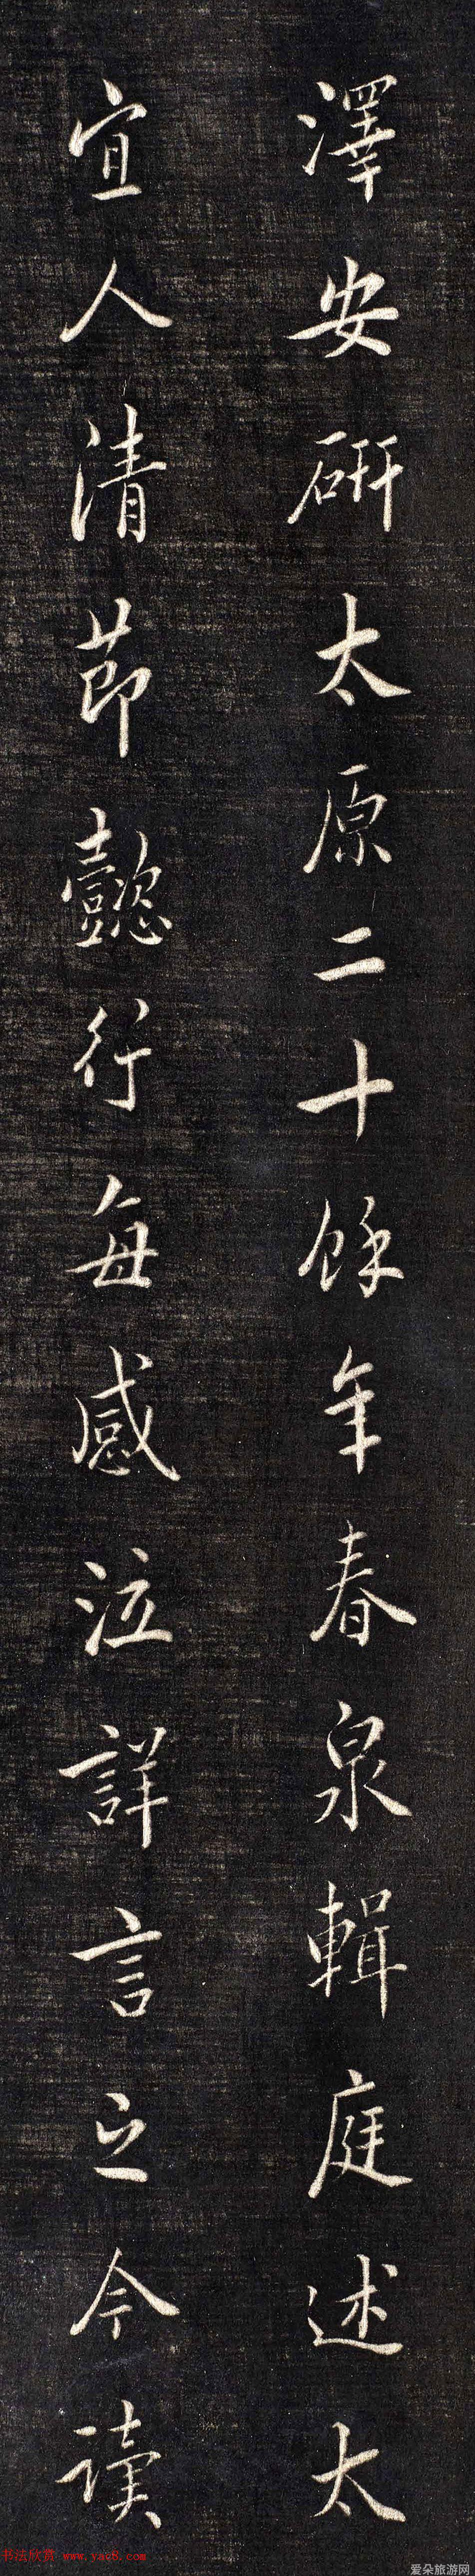 澤安研太原二十餘年春泉輯庭述太
宜人清節懿行每感泣詳言之今讀
书法欣赏 www.yac8.com
爱朵旅游网